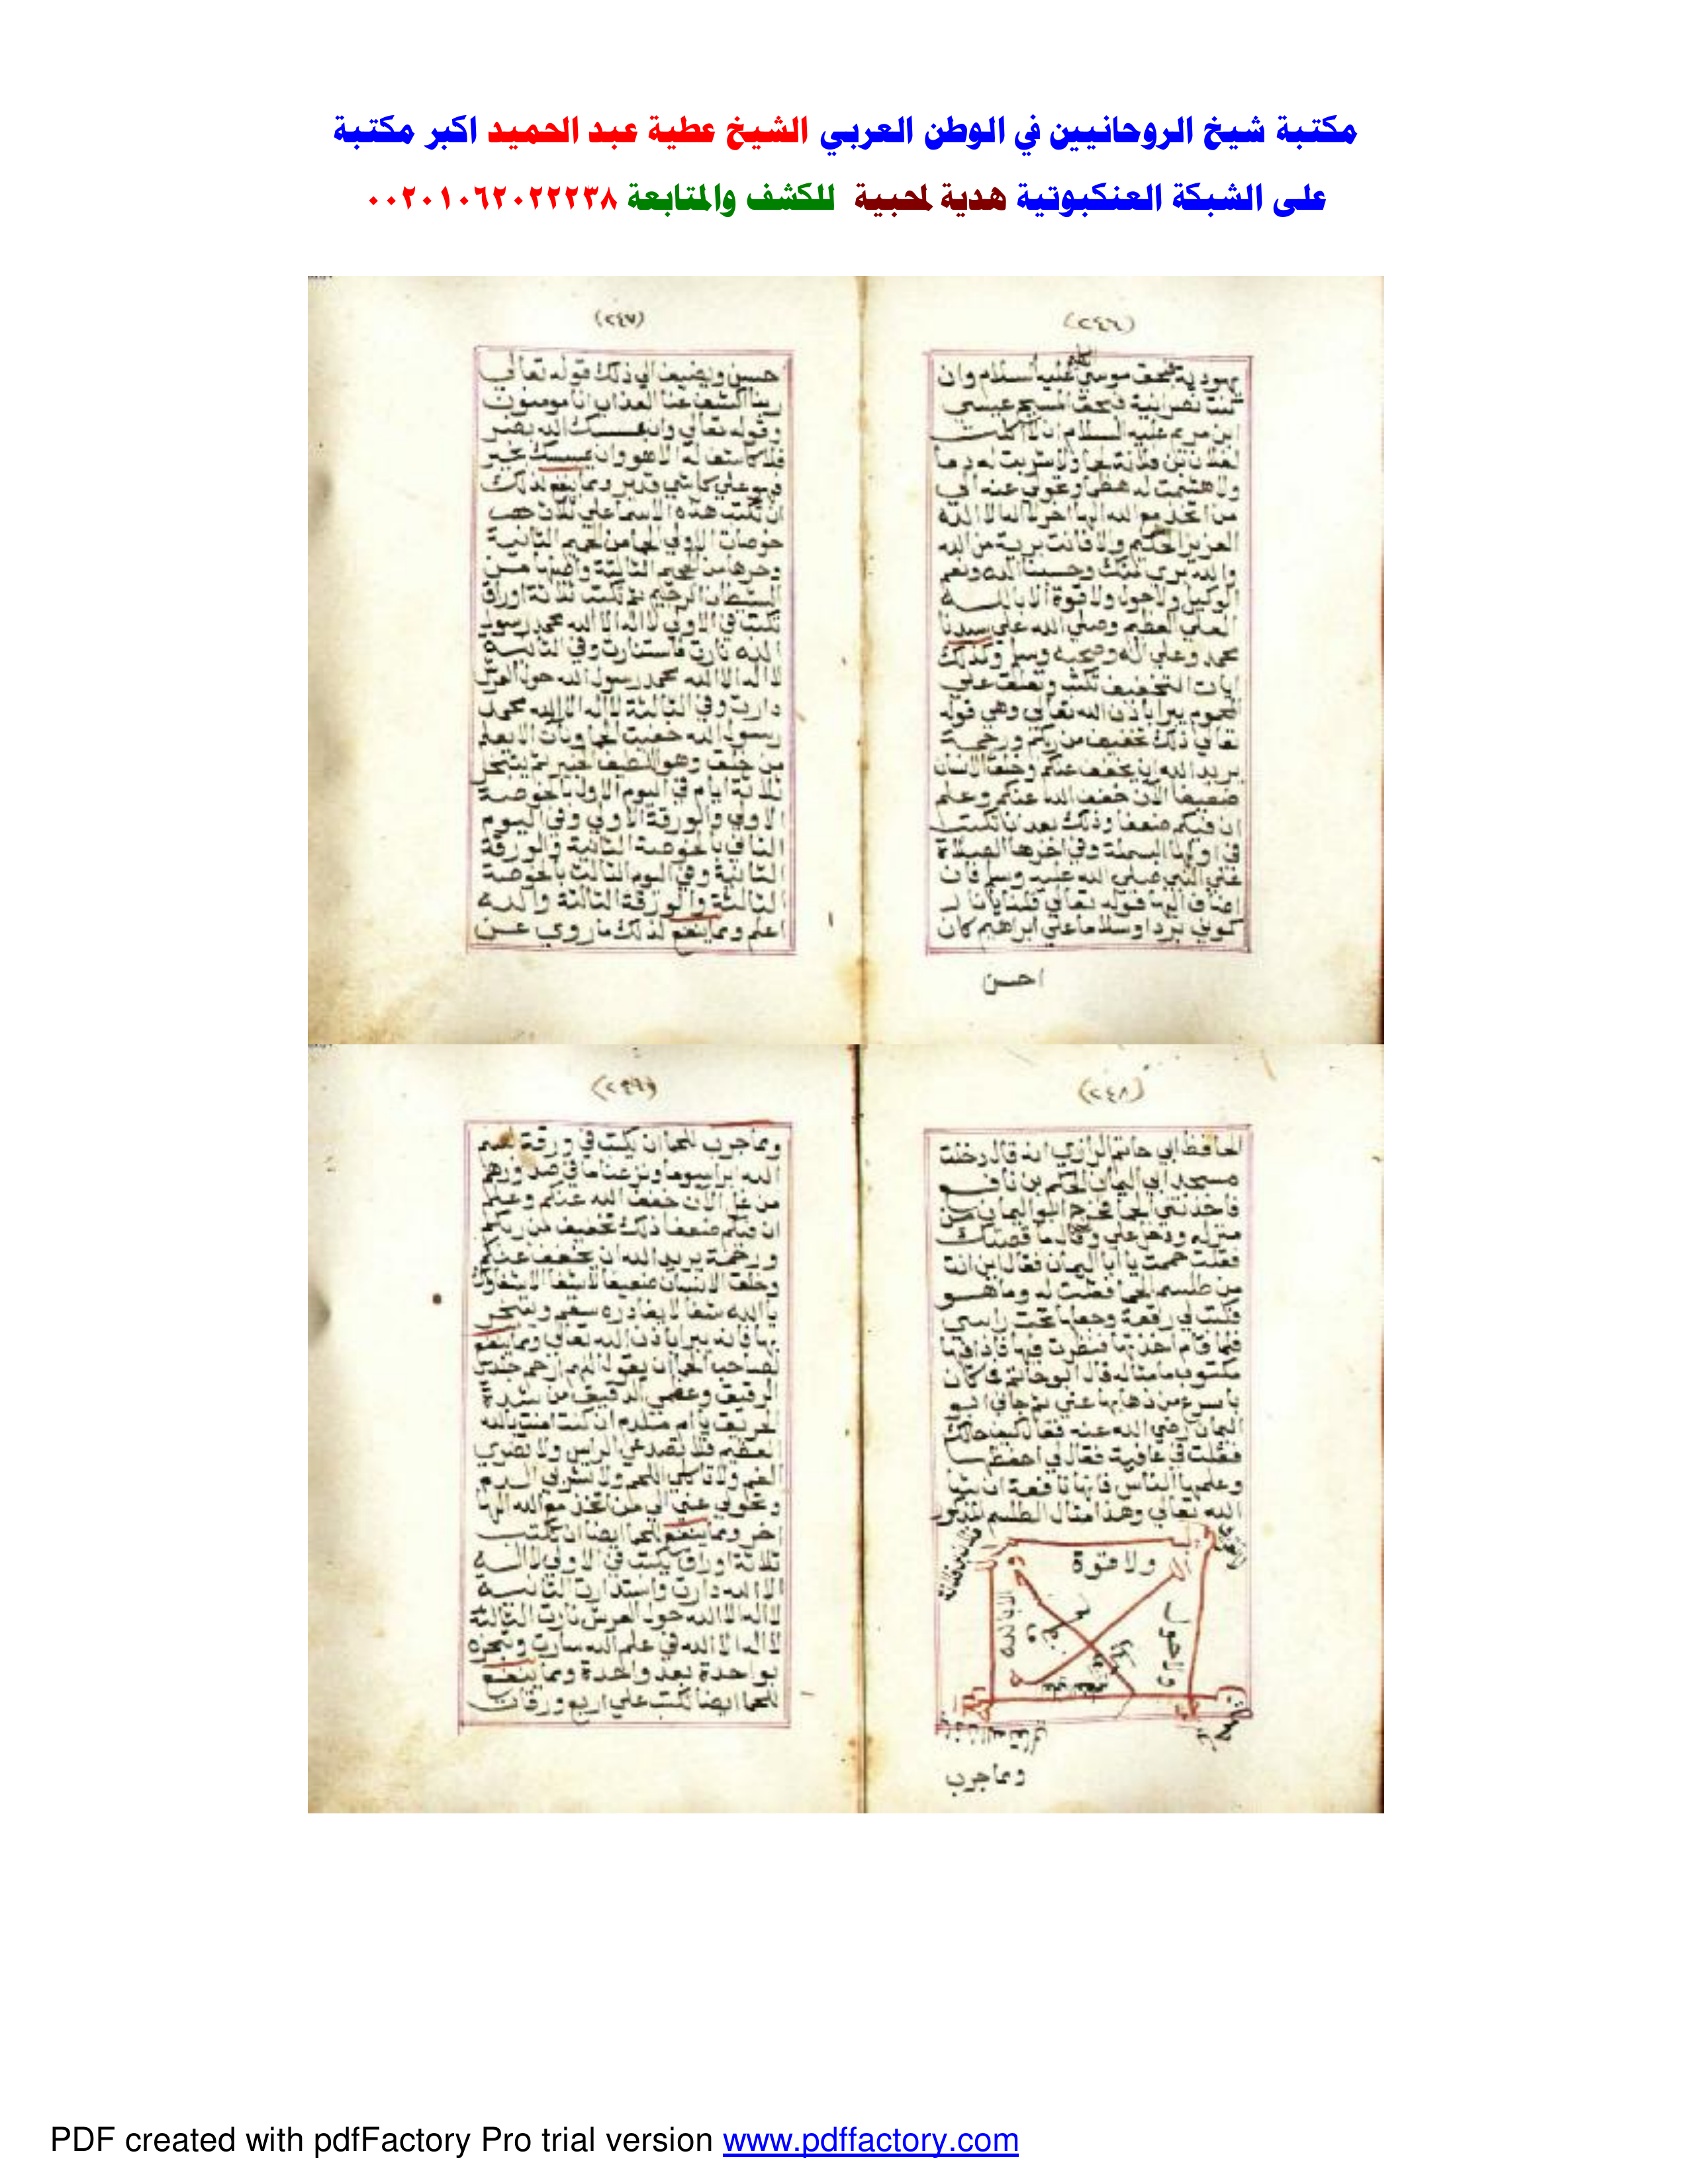 مكتبة شيخ الروحانيين في الوطن العربي الشيخ عطية عبد الحميد اكبر مكتبة
على الشبكة العنكبوتية هدية لمحبية للكشف والمتابعة ٠٠٢٠١٠٦٢٠٢٢٢٣٨
(٢٤٦)
يهودية فبحق موسى الكليم عليه السلام وان
كنت نصرانية فبحق المسيح عيسي
ابن مريم عليه السلام ان لا اكلت
لفلان بن فلانة لحما ولا شربت له دما
ولا هشمت له عظما وتحولي عنه الي
من اتخذ مع الله الها اخر لا اله الا الله
العزيز الحكيم والا فانت برية من الله
والله بري منك وحسبنا الله ونعم
الوكيل ولا حول ولا قوة الا بالله
العلي العظيم وصلي الله علي سيدنا
محمد وعلي اله وصحبه وسلم وكذلك
ايات التخفيف تكتب وتعلق علي
المحموم يبرا باذن الله تعالي وهي قوله
تعالي ذلك تخفيف من ربكم ورحمة
يريد الله ان يخفف عنكم وخلق الانسان
ضعيفا الان خفف الله عنكم وعلم
ان فيكم ضعفا وذلك بعد ان تكتب
في اولها البسملة وفي اخرها الصلاة
علي النبي صلي الله عليه وسلم فان
اضاف اليها قوله تعالي قلنا يا نار
كوني بردا وسلاما علي ابراهيم كان
احسن
(٢٤٧)
حسن ويضيف الي ذلك قوله تعالي
ربنا اكشف عنا العذاب انا مومنون
وقوله تعالي وان يمسسك الله بضر
فلا كاشف له الا هو وان يمسسك بخير
فهو علي كل شي قدير ومما ينفع لذلك
ان تكتب هذه الاسما علي ثلاث
خوصات الاولي من الجحيم الثانية
وحرها من الجحيم الثالثة واصلها من
الشيطان الرجيم ثم تكتب ثلاثة اوراق
تكتب في الاولي لا اله الا الله محمد رسول
الله نارت فاستنارت وفي الثانية
لا اله الا الله محمد رسول الله حول العرش
دارت وفي الثالثة لا اله الا الله محمد
رسول الله الا يعلم
من خلق وهو اللطيف الخبير ثم يتبخر
ثلاثة ايام في اليوم الاول بالخوصة
الاولي والورقة الاولي وفي اليوم
الثاني بالخوصة الثانية والورقة
الثانية وفي اليوم الثالث بالخوصة
الثالثة والورقة الثالثة والله
اعلم ومما ينفع لذلك ما روي عن
(٢٤٨)
الحافظ ابي حاتم الرازي انه قال دخلت
مسجد ابي اليمان الحكم بن نافع
فاخذتني الحما فخرج ابو اليمان من
منزله ودخل علي وقال ما قصتك
فقلت حممت يا ابا اليمان فقال اين انت
من طلسم الحما فقلت له وما هو
فكتب لي رقعة وجعلها تحت راسي
فلما قام اخذتها فنظرت فيها فاذا فيها
مكتوب ما مثاله قال ابو حاتم فما كان
باسرع من ذهابها عني ثم جاني ابو
اليمان رضي الله عنه فقال كيف حالك
فقلت في عافية فقال لي احفظها
وعلمها الناس فانها نافعة ان شا
الله تعالي وهذا مثال الطلسم المذكور
ولا قوة
ولا حول
ومما جرب
(٢٤٩)
ومما جرب للحما ان يكتب في ورقة بسم
الله ونزعنا ما في صدورهم
من غل الان خفف الله عنكم وعلم
ان فيكم ضعفا ذلك تخفيف من ربكم
ورحمة يريد الله ان يخفف عنكم
وخلق الانسان ضعيفا لا شفا الا شفاوك
يا الله شفا لا يغادره سقم وتبخر
بها فانه يبرا باذن الله تعالي ومما ينفع
لصاحب الحما ان يقول اللهم ارحم جلدي
الرقيق وعظمي الدقيق من شدة
الحريق يا ام ملدم ان كنت امنت بالله
العظيم فلا تصدعي الراس ولا تضري
الفم ولا تاكلي اللحم ولا تشربي الدم
وتحولي عني الي من اتخذ مع الله الها
اخر ومما ينفع للحما ايضا ان تكتب
ثلاثة اوراق يكتب في الاولي لا اله
الا الله دارت واستدارت الثانية
لا اله الا الله حول العرش نارت الثالثة
لا اله الا الله في علم الله سارت وتبخره
بواحدة بعد واحدة ومما ينفع
للحما ايضا تكتب علي اربع ورقات
PDF created with pdfFactory Pro trial version www.pdffactory.com